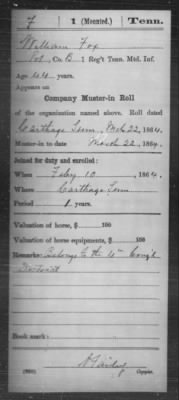 F 1 (Mounted.) Tenn.
William Fox
Pvt, Co. B 1 Reg't Tenn. Mtd. Inf.
Age 44 years.
Appears on
Company Muster-in Roll
of the organization named above. Roll dated
Carthage Tenn, Mch 22, 1864.
Muster-in to date March 22, 1864.
Joined for duty and enrolled:
When Feby 10, 1864.
Where Carthage Tenn
Period 1 years.
Valuation of horse, $ 100
Valuation of horse equipments, $ 100
Remarks: Belongs to the 4" Cong'l
District
Book mark:
Copyist.